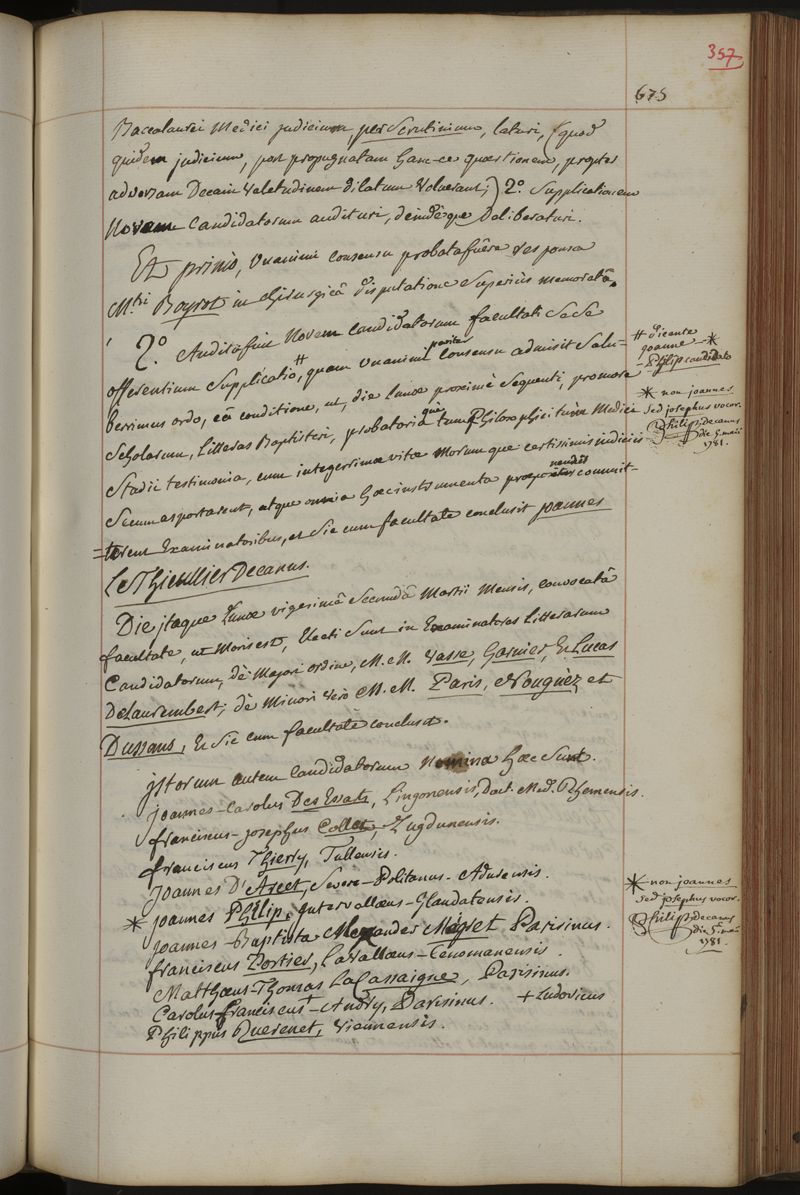 357
675
Baccalaurei Medici judicium, per Scrutinium, laturi, (quod
quidem judicium, post propugnatam hanc-ce quæstionem, propter
adversam Decani Valetudinem dilatum Voluerant;) 2.° Supplicationem
Novem Candidatorum audituri, deindèque Deliberaturi.
Et primò, Unanimi consensu probata fuêre responsa
M.tri Boyrot in chirurgicâ disputatione Superiùs memoratâ.
2.° Audita fuit Novem Candidatorum facultati Sese
offerentium Supplicatio,# quam Unanimi pariter Consensu admisit Salu-
berrimus ordo, eâ conditione, ut, die lunæ proximè Sequenti, promore
Scholarum, Litteras Baptisteri, probatoria que tùm Philosophici tùm Medici
Stadii testimonia, cum integerrimæ vitæ Morumque certissimis judiciis
Secum asportarent, atque omnia hæc instrumenta committ-
=terent Examinatoribus, et Sic cum facultate conclusit joannes
Le Thieullier Decanus.
# dicente
joanne *
Philip candidato
* non joannes
sed josephus vocor.
Philip, decanus
die 5 maii
1781.
Die jtaque Lunæ vigesimâ Secundâ Martii Mensis, convocatâ
facultate, ut Moris est, Electi Sunt in Examinatores Litterarum
Candidatorum, dè Majori ordine, M.M. Vasse, Garnier, & Lucas
DeLaurembert; dè Minori Verò M.M. Paris, Nouguèz et
Dussans, & Sic cum facultate conclusit.
jstorum autem Candidatorum Nomina hæc Sunt.
joannes-Carolus Des Essarts, Lingonensis, Doct. Med. Rhemensis.
franciscus-josephus Collet, Lugdunensis.
franciscus Thierry, Tullensis.
Joannes D'Arcet, Severo-Politanus-Adurensis.
* joannes Philip, jntervallæus-Glandatensis.
joannes-Baptista Alexander Maigret Parisinus.
franciscus Portier, Lavallæus-Cenomanensis.
Matthæus-Thomas La Cassaigne, Parisinus.
Carolus-franciscus+-Andry, Parisinus. + Ludovicus
Philippus Querenet, Viennensis.
* non joannes
sed josephus vocor.
Philip, decanus
die 5.a maii
1781.